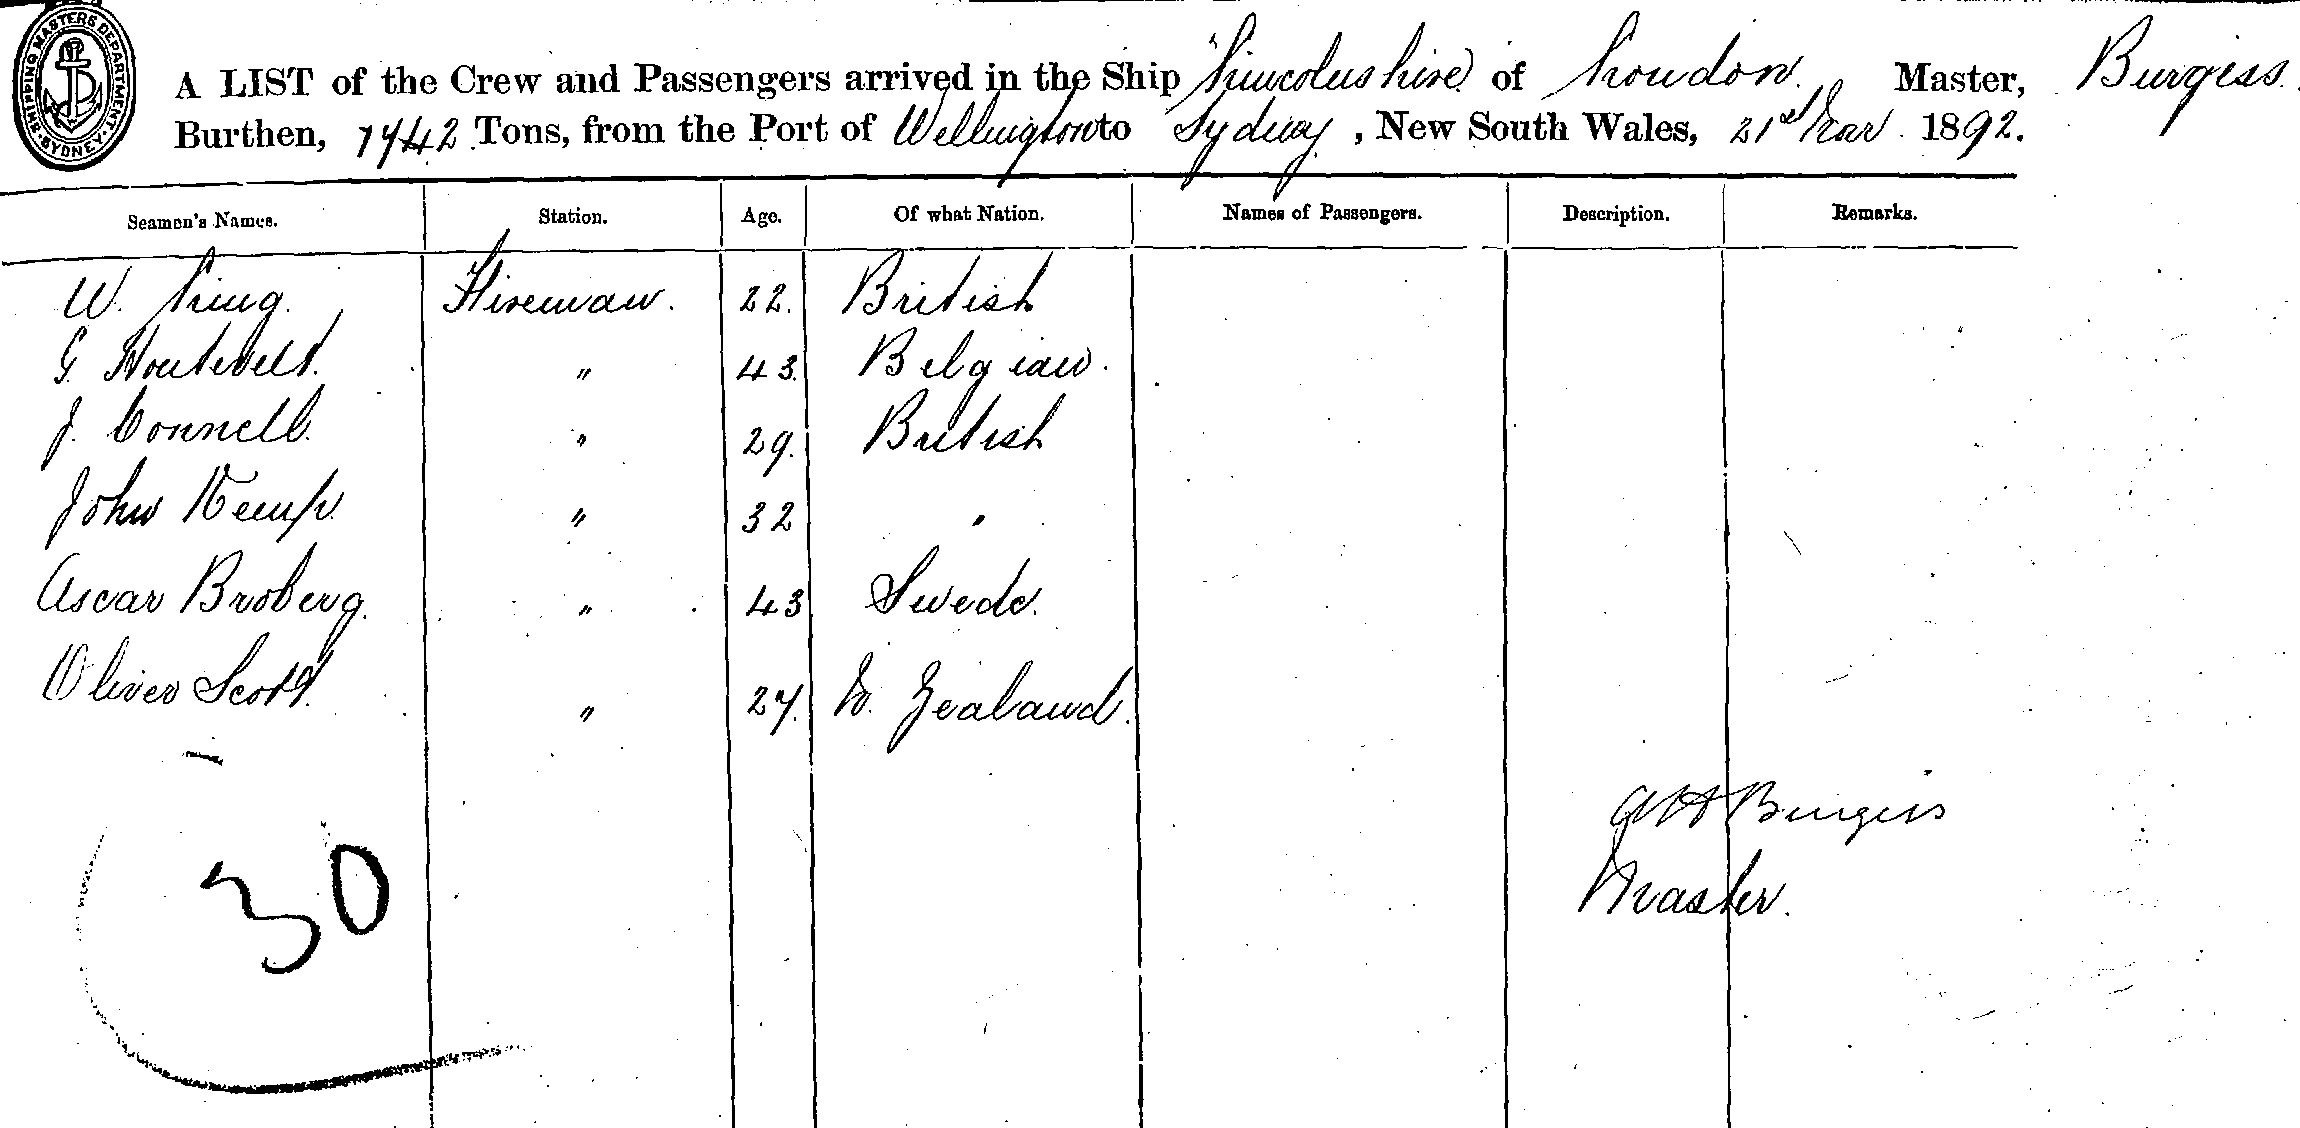 SHIPPING MASTERS DEPARTMENT. SYDNEY.
A LIST of the Crew and Passengers arrived in the Ship "Lincolnshire of London. Master, Burgess.
Burthen, 1742 Tons, from the Port of Wellington to Sydney, New South Wales, 21st Mar. 1892.
Seamen's Names. Station. Age. Of what Nation. Names of Passengers. Description. Remarks.
W. Fireman. 22. British
G. " 43. Belgian.
J. Connell. " 29. British
John Kemp. " 32 "
Oscar Broberg. " 43 Swede.
Oliver Scott. " 27. N. Zealand.
Burgess
Master.
30